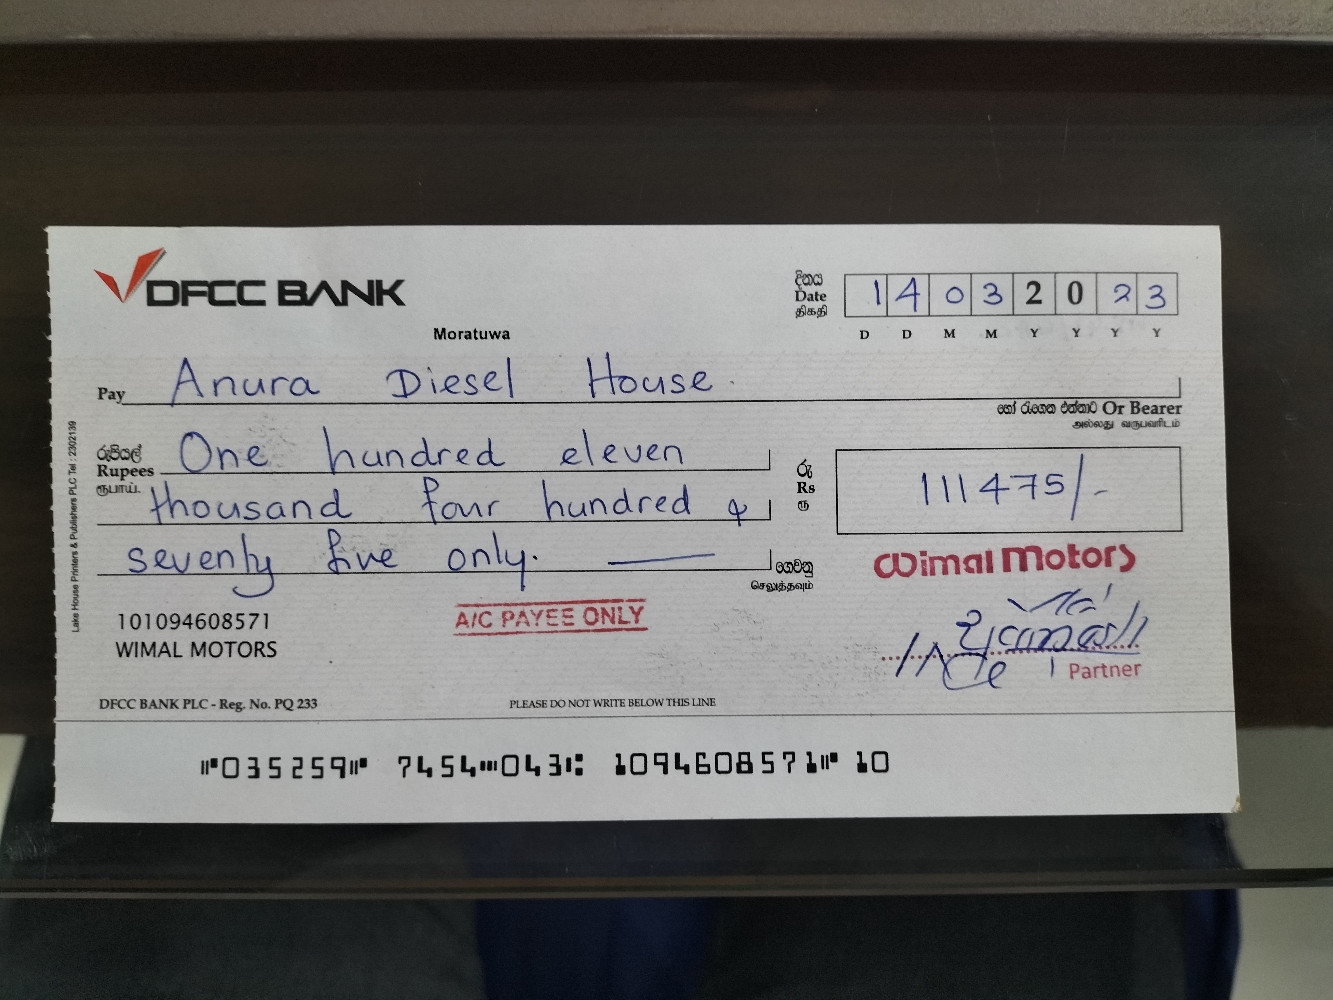 DFCC BANK
Moratuwa
දිනය
Date
திகதி
1 4 0 3 2 0 2 3
D D M M Y Y Y Y
Pay Anura Diesel House.
හෝ රැගෙන එන්නාට Or Bearer
அல்லது வருபவரிடம்
රුපියල්
Rupees
ரூபாய்.
One hundred eleven
thousand four hundred &
seventy five only.
රු
Rs
ரூ
111475/-
ගෙවනු
செலுத்தவும்
Wimal Motors
A/C PAYEE ONLY
101094608571
WIMAL MOTORS
Partner
DFCC BANK PLC - Reg. No. PQ 233
PLEASE DO NOT WRITE BELOW THIS LINE
Lake House Printers & Publishers PLC Tel : 2302139
⑈035259⑈ 7454⑉043⑆ 1094608571⑈ 10